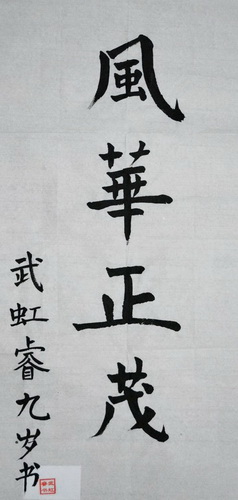 風華正茂
武虹睿九岁书